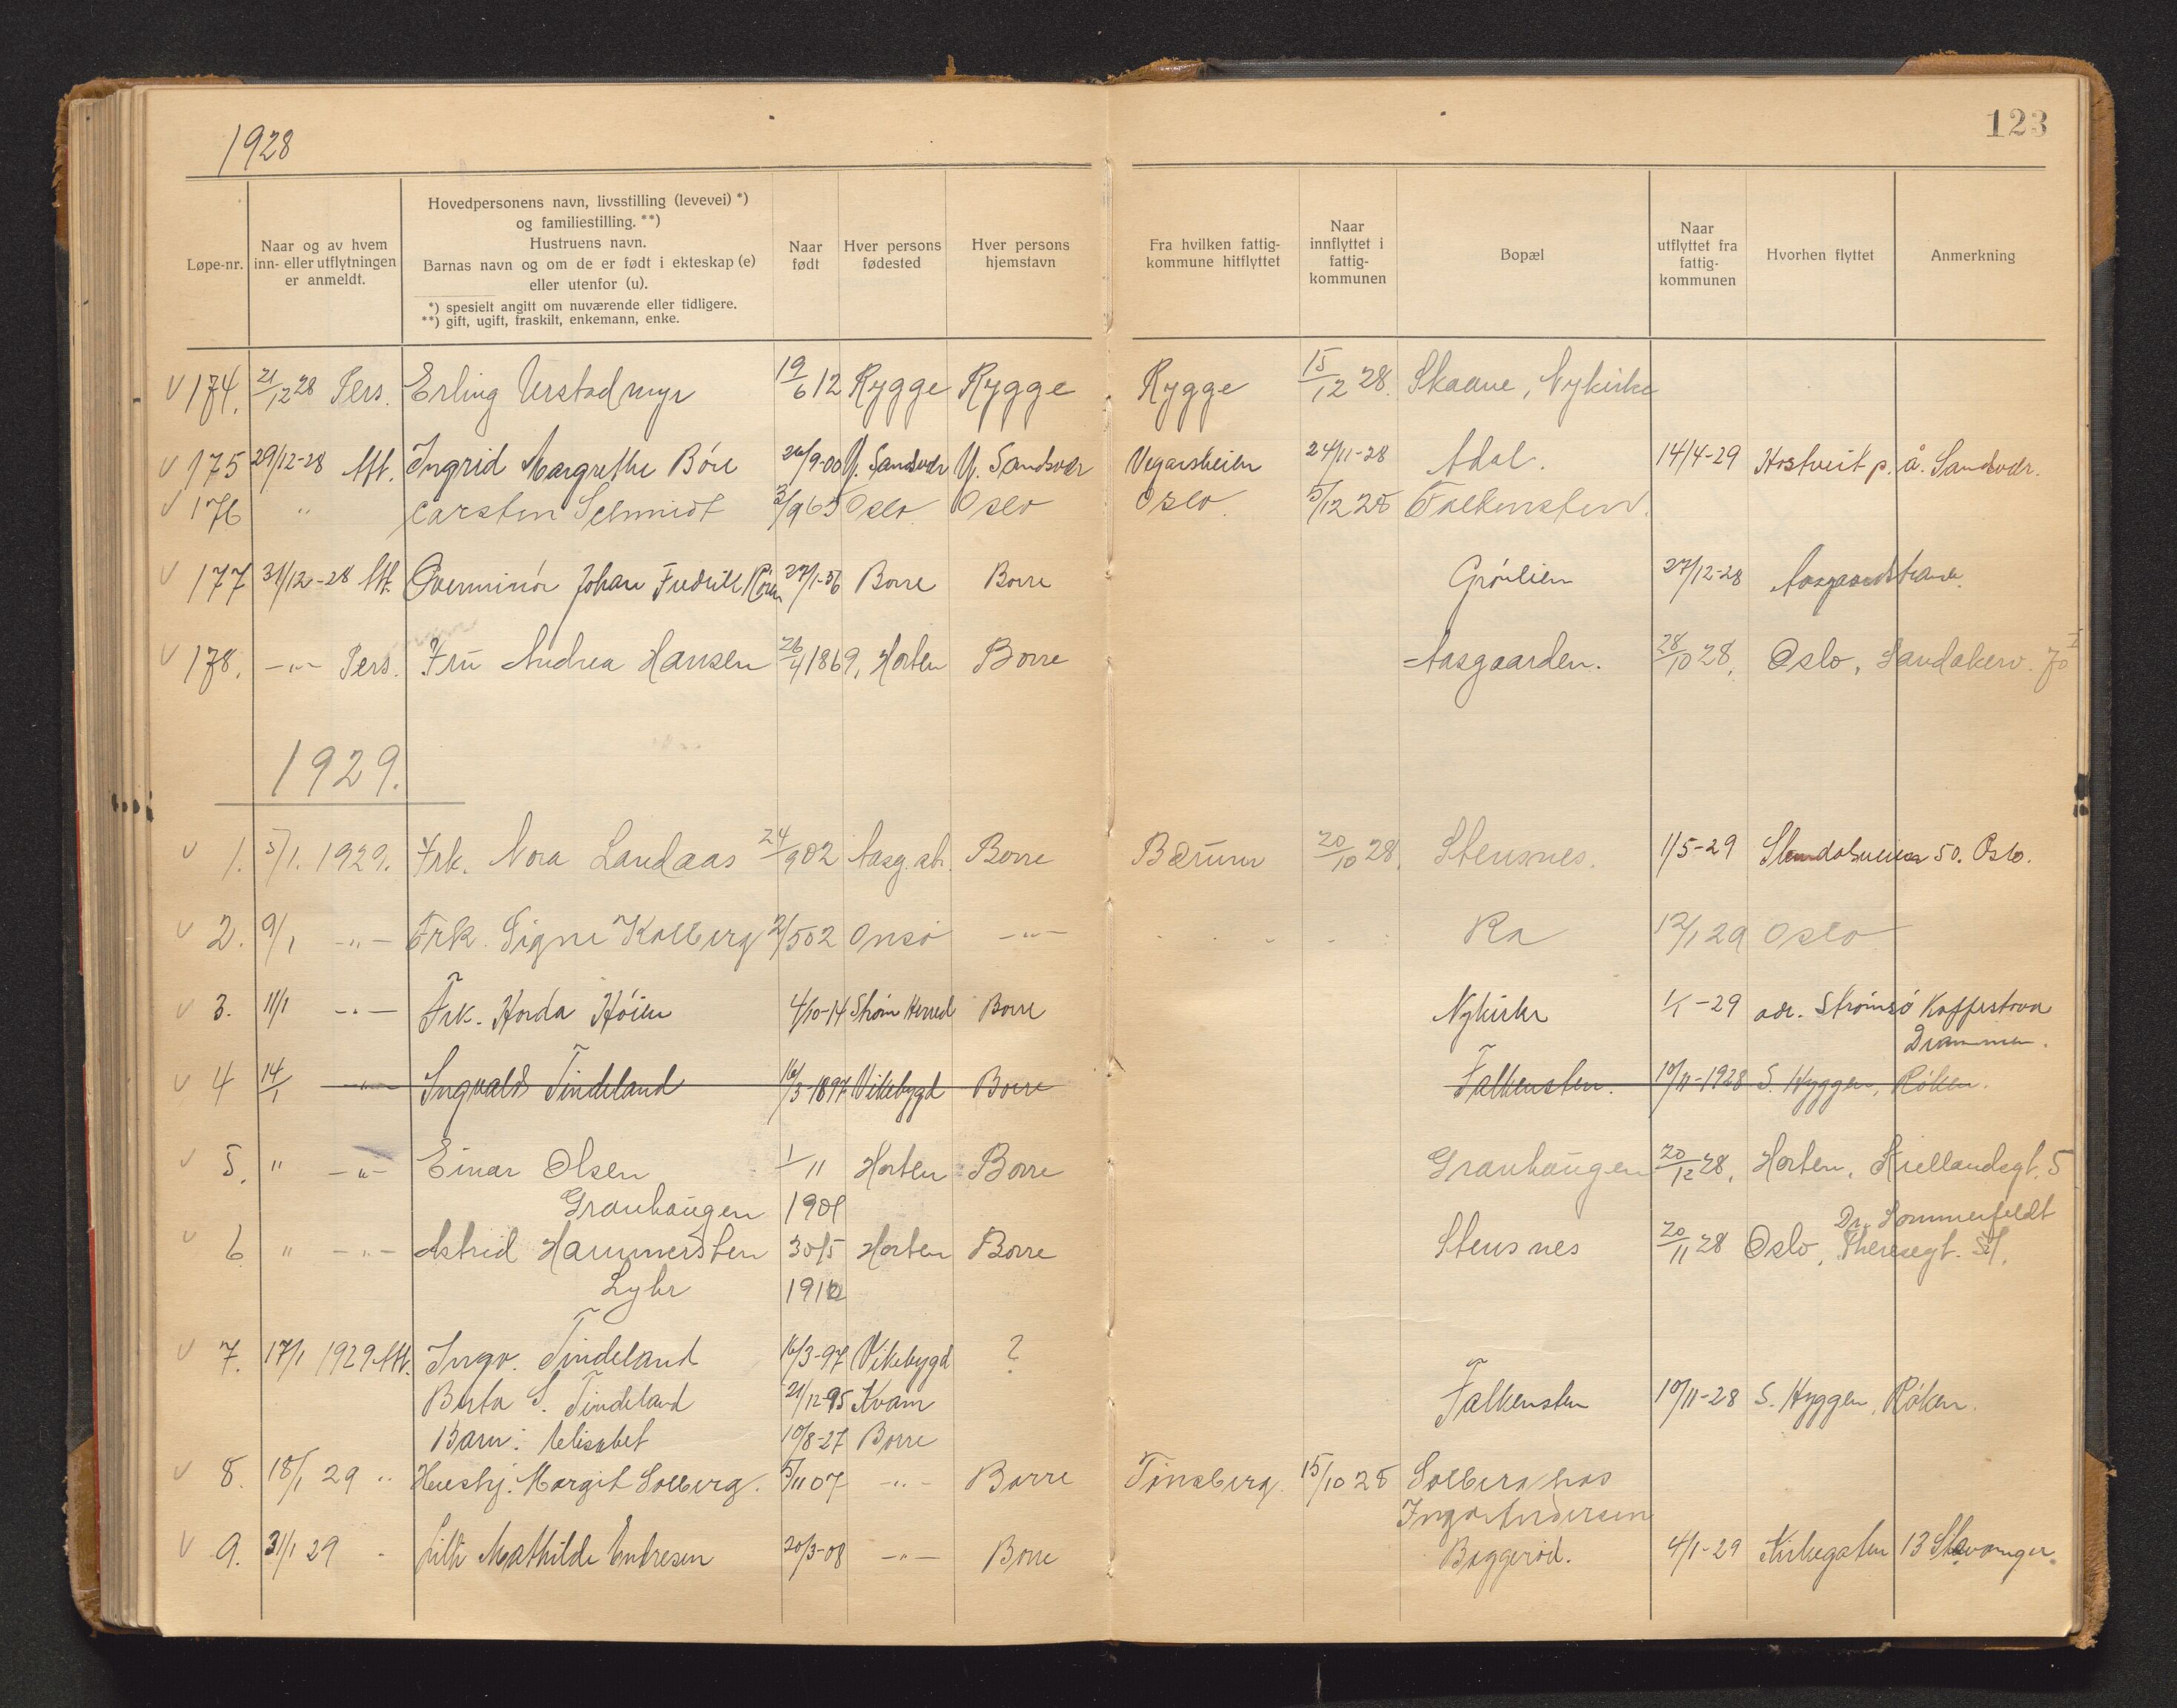 1928
123
Løpe-nr.
Naar og av hvem
inn- eller utflytningen
er anmeldt.
Hovedpersonens navn, livsstilling (levevei) *)
og familiestilling. **)
Hustruens navn.
Barnas navn og om de er født i ekteskap (e)
eller utenfor (u).
*) spesielt angitt om nuværende eller tidligere.
**) gift, ugift, fraskilt, enkemann, enke.
Naar
født
Hver persons
fødested
Hver persons
hjemstavn
Fra hvilken fattig-
kommune hitflyttet
Naar
innflyttet i
fattig-
kommunen
Bopæl
Naar
utflyttet fra
fattig-
kommunen
Hvorhen flyttet
Anmerkning
174. 21/12 28 Pers. Erling Urstadmyr 19/6 12 Rygge Rygge Rygge 15/12 28. Skaane, Nykirke
175 29/12-28 Att. Ingrid Margrethe Böre 26/9-00 Y. Sandsvær Y. Sandsvær Vegarsheien 24/11-28 Adal. 14/4-29 Hostveit p. å. Sandsvær.
176 " Carsten Schmidt 3/9 65 Oslo Oslo Oslo. 5/12 28 Falkensten.
177 31/12-28 Att. Överminör Johan Fredrik 27/1-56 Borre Borre Grönlien 27/12-28 Aasgaardstrand.
178. -"- Pers. Fru Andrea Hansen 26/4 1869, Horten Borre Aasgaarden. 28/10 28. Oslo, Sandakerv. 70 I
1929.
1. 5/1. 1929. Frk. Nora Landaas 24/9 02 Aasg.str. Borre Bærum 20/10 28. Stensnes. 1/5-29 50. Oslo.
2. 9/1 -"- Frk. Signe Kolberg 2/5 02 Onsö -"- Ra 12/1 29 Oslo
3. 11/1 -"- Frk. Horda Höien 4/10-14 Ström Herred Borre Nykirke 1/1-29 adr. Strömsö Kaffestova
Drammen.
4 14/1 -"- Ingvald Tindeland 16/3-1897 Vikebygd Borre Falkensten. 10/11-1928 S. Hyggen, Röken.
5. " -"- Einar Olsen 1/11 Horten Borre Granhaugen 20/12 28. Horten, Kiellandsgt. 5
Granhaugen 1901
Dr. Sommerfeldt
6 " -"- Astrid Hammersten 30/5 Horten Borre Stensnes 20/11 28 Oslo, Theresegt. 51.
Lyhr 1910
7. 17/1 1929 Att. Ingv. Tindeland 16/3-97 Vikebygd ?
Berta S. Tindeland 21/12-95 Kvam Falkensten 10/11-28 S. Hyggen, Röken.
Barn: Elisabet 10/8-27 Borre
8. 18/1 29 " Hushj. Margit Solberg. 5/11 07 -"- Borre Tönsberg 15/10 28 Solberg hos
Inga Andersen
9. 31/1 29 - Lilli Mathilde Endresen 20/3-08 -"- Borre Baggeröd. 4/1-29 Kirkegaten 13 Stavanger.